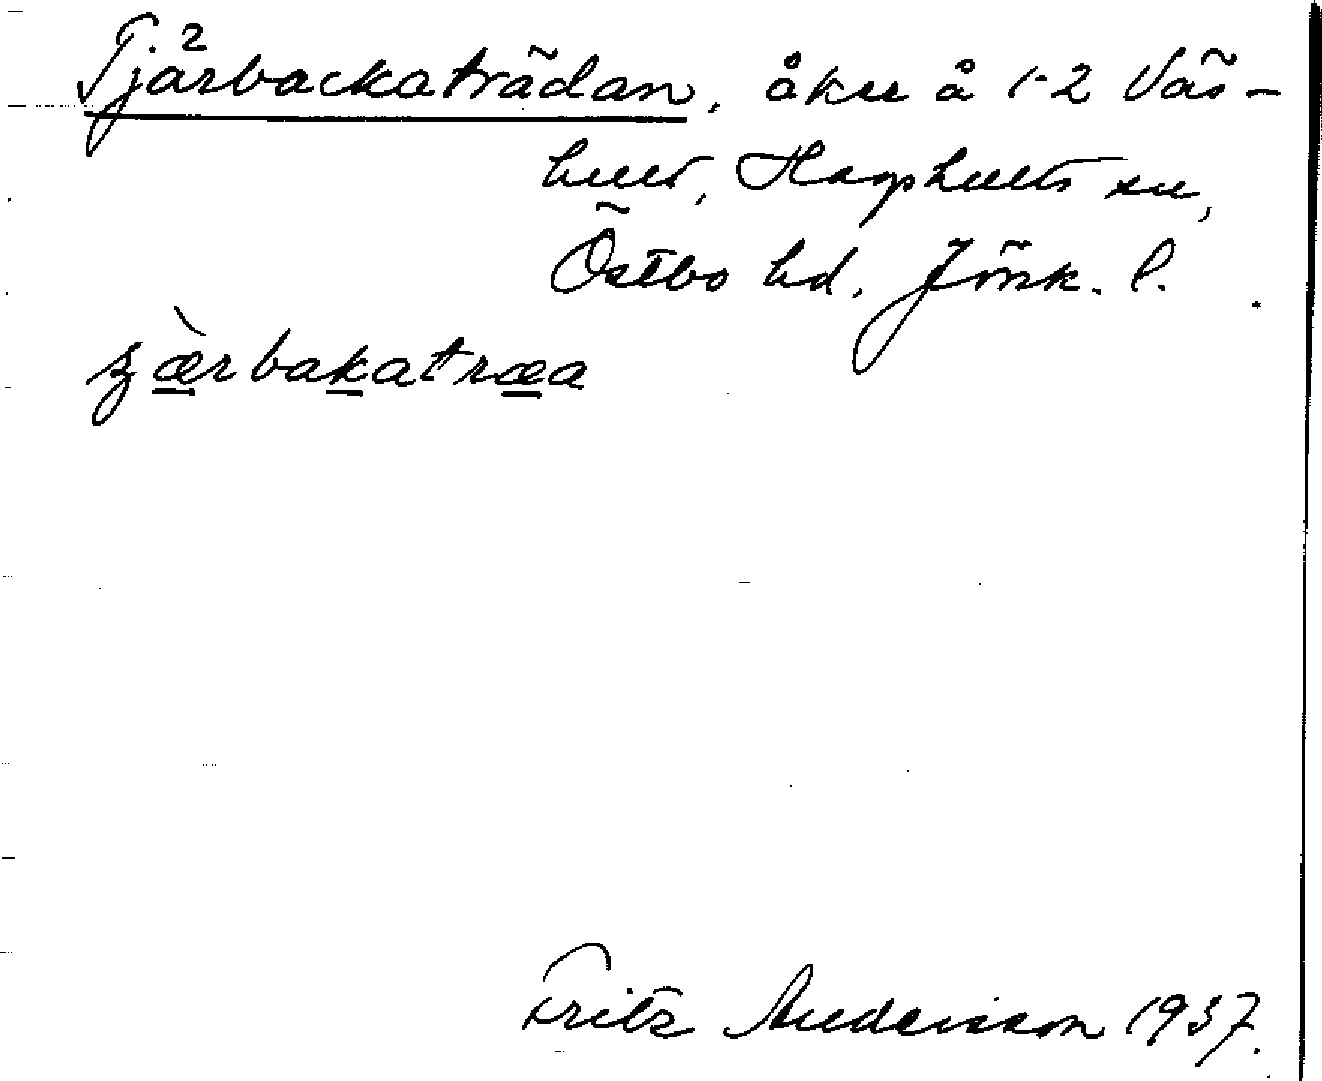 Tjärbackaträdan, åker å 1-2 Väs-
hult, Hagshults sn,
Östbo hd, Jönk. l.
ʒærbakatræa
Fritz Andersson 1937.